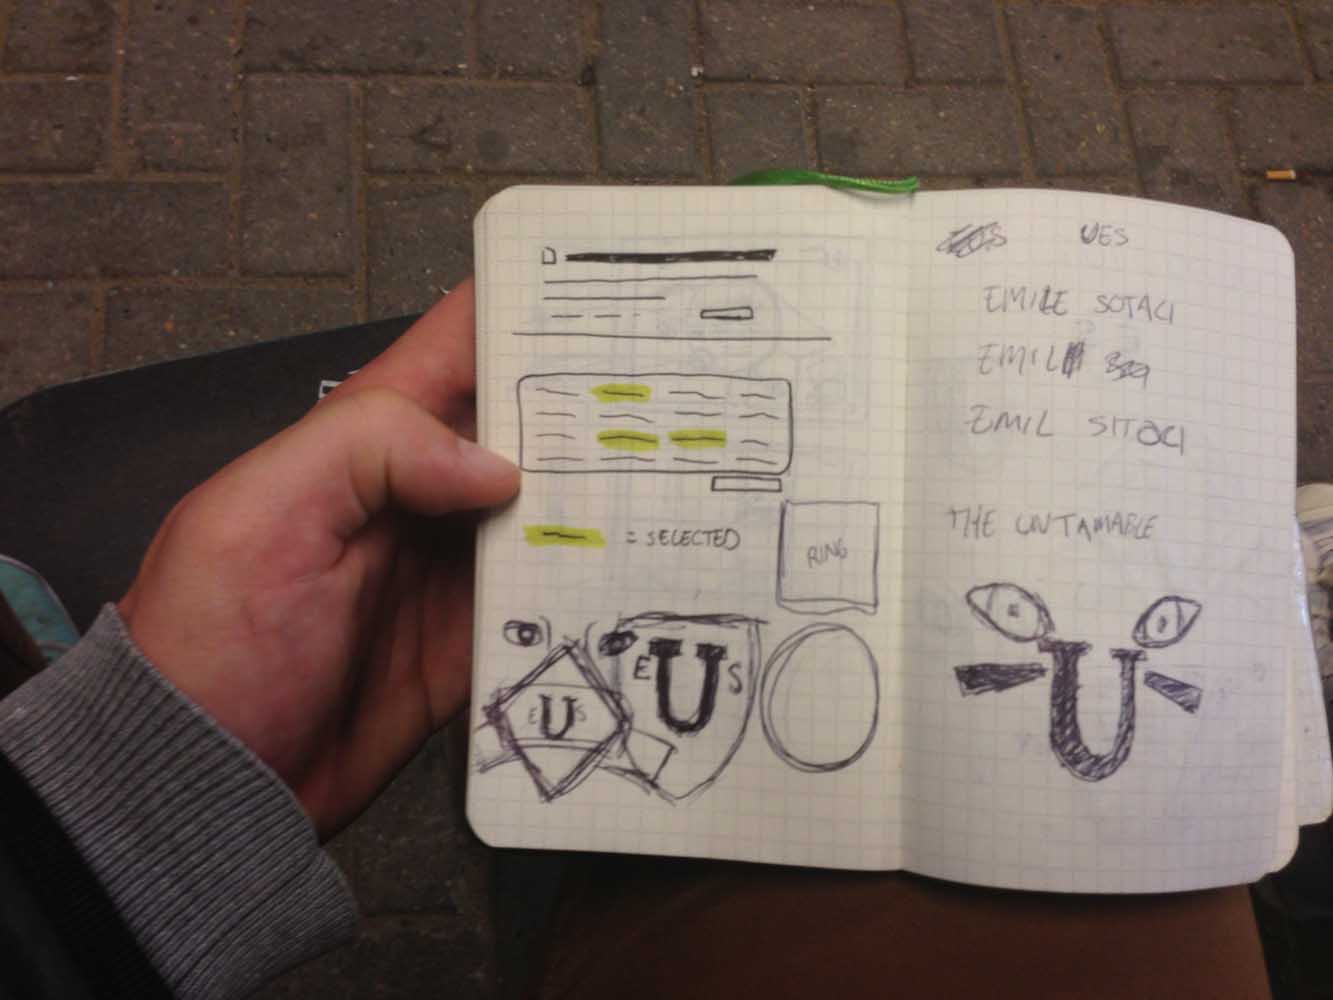 = SELECTED
RING
E U S
E U S
UES
EMILE SOTACI
EMIL
EMIL SITACI
THE UNTAMABLE
U